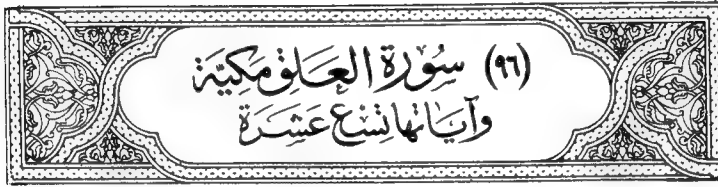 (٩٦) سُورَة العَلق مَكيَّة
وَآيَاتها تِسْع عَشِرَة